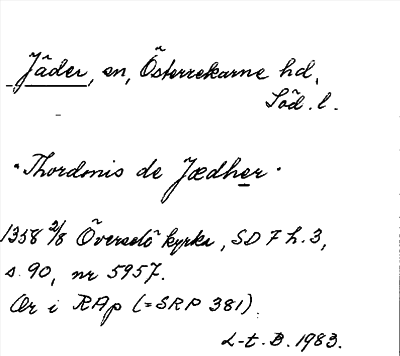 Jäder, sn, Österrekarne hd,
Söd. l.
"Thordonis de Jædher"
1358 2/8 Överselö kyrka, SD 7 h. 3,
s. 90, nr 5957.
Or i RAp (=SRP 381).
L-t. B. 1983.